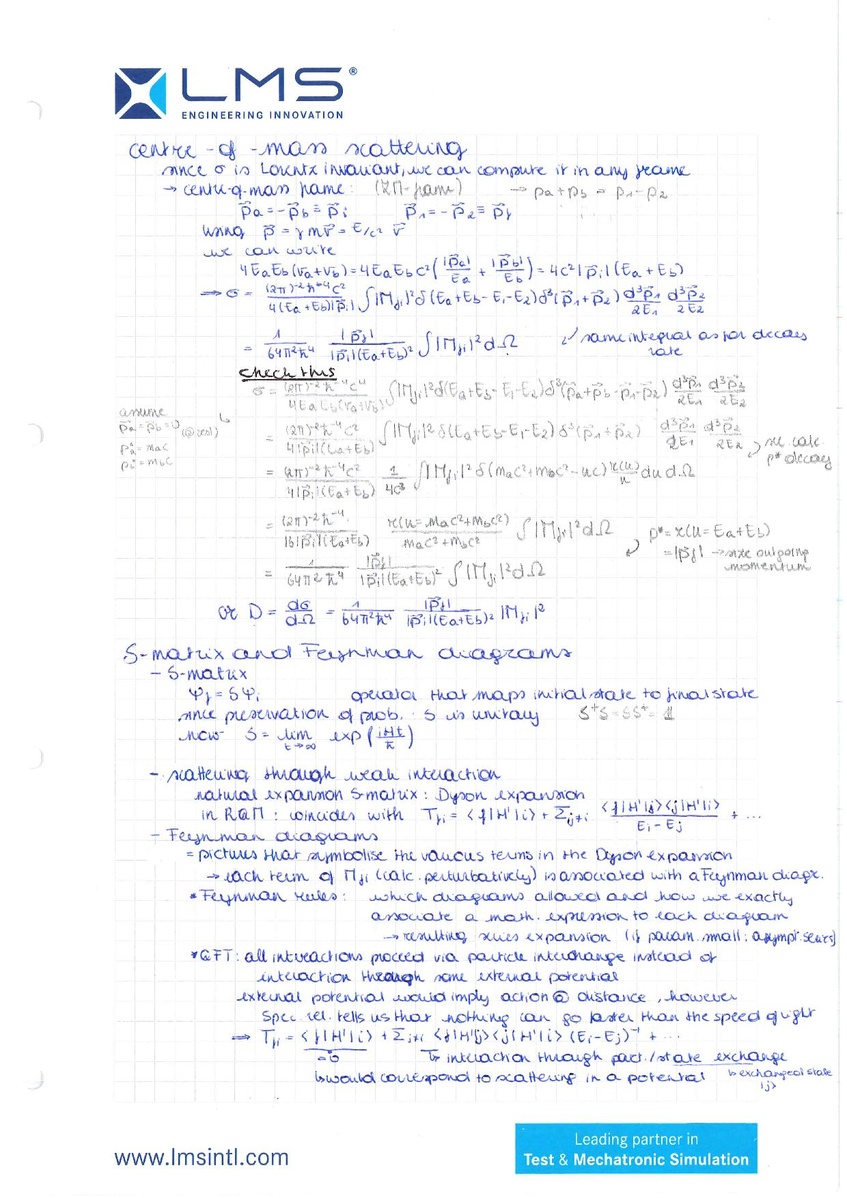 LMS®
ENGINEERING INNOVATION
centre-of-mass scattering
since σ is Lorentz invariant, we can compute it in any frame
→ centre-of-mass frame: (ZM-frame) → pa+pb = p1-p2
p⃗a=-p⃗b≡p⃗i p⃗1=-p⃗2≡p⃗f
using p⃗=γmv⃗=E/c² v⃗
we can write
4EaEb(va+vb)=4EaEbc²(|p⃗a|/Ea + |p⃗b|/Eb)=4c²|p⃗i|(Ea+Eb)
⇒ σ = (2π)⁻²ħ⁻⁴c²/4(Ea+Eb)|p⃗i| ∫|Mfi|²δ(Ea+Eb-E1-E2)δ³(p⃗1+p⃗2) d³p⃗1/2E1 d³p⃗2/2E2
= 1/64π²ħ⁴ |p⃗f|/|p⃗i|(Ea+Eb)² ∫|Mfi|²dΩ ↙ same integral as for decay rate
check this
σ = (2π)⁻²ħ⁻⁴c⁴/4EaEb(va+vb) ∫|Mfi|²δ(Ea+Eb-E1-E2)δ³(p⃗a+p⃗b-p⃗1-p⃗2) d³p⃗1/2E1 d³p⃗2/2E2
assume
p⃗a=p⃗b=0 (@rest)
p°a=maC
p°b=mbC
= (2π)⁻²ħ⁻⁴c²/4|p⃗i|(Ea+Eb) ∫|Mfi|²δ(Ea+Eb-E1-E2)δ³(p⃗1+p⃗2) d³p⃗1/2E1 d³p⃗2/2E2
see calc. p* decay
= (2π)⁻²ħ⁻⁴c²/4|p⃗i|(Ea+Eb) 1/4c³ ∫|Mfi|²δ(mac²+mbc²-uc) r(u)/u du dΩ
= (2π)⁻²ħ⁻⁴/16|p⃗i|(Ea+Eb) r(u=mac²+mbc²)/mac²+mbc² ∫|Mfi|²dΩ
p*=r(u=Ea+Eb)
=|p⃗f| → size outgoing momentum
= 1/64π²ħ⁴ |p⃗f|/|p⃗i|(Ea+Eb)² ∫|Mfi|²dΩ
or D = dσ/dΩ = 1/64π²ħ⁴ |p⃗f|/|p⃗i|(Ea+Eb)² |Mfi|²
S-matrix and Feynman diagrams
- S-matrix
Ψf=SΨi operator that maps initial state to final state
since preservation of prob. S is unitary S⁺S=SS⁺=1
now S = lim t→∞ exp(iHt/ħ)
- scattering through weak interaction
natural expansion S-matrix: Dyson expansion
in RQM: coincides with Tfi = <f|H'|i> + Σj≠i <f|H'|j><j|H'|i>/Ei-Ej + ...
- Feynman diagrams
= pictures that symbolise the various terms in the Dyson expansion
→ each term of Mfi (calc. perturbatively) is associated with a Feynman diagr.
* Feynman rules: which diagrams allowed and how we exactly
associate a math. expression to each diagram
→ resulting series expansion (if param. small: asympt. series)
* QFT: all interactions proceed via particle interchange instead of
interaction through some external potential
external potential would imply action @ distance, however
spec. rel. tells us that nothing can go faster than the speed of light
⇒ Tfi = <f|H'|i> + Σj≠i <f|H'|j><j|H'|i>(Ei-Ej)⁻¹ + ...
=0 ↳ interaction through part./state exchange
↳ would correspond to scattering in a potential ↳ exchanged state
|j>
www.lmsintl.com
Leading partner in
Test & Mechatronic Simulation